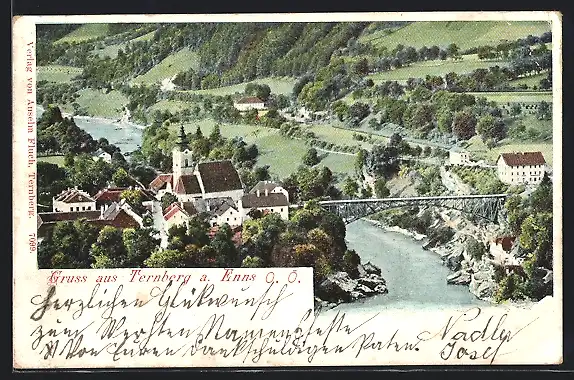 Verlag von Anselm Fluch, Ternberg. 7089.
Gruss aus Ternberg a. Enns O. Ö.
Herzlichen Glükwunsch
zum Werthen Namensfeste
Von Euren dankschuldigen Paten.
Nadler
Josef